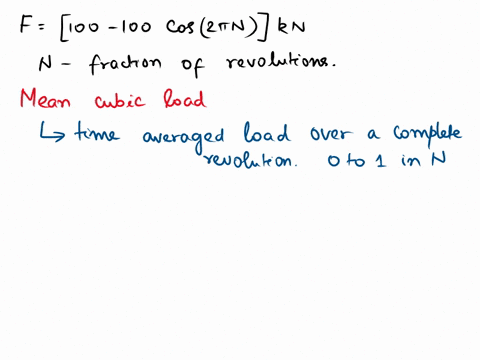 F = [100 - 100 cos(2πN)] kN
N - fraction of revolutions.
Mean cubic load
↳ time averaged load over a complete
revolution. 0 to 1 in N